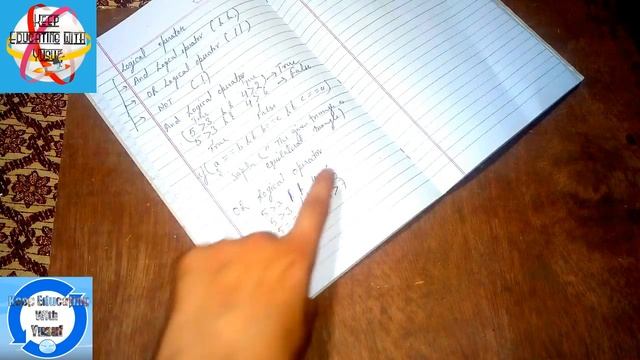 KEEP
EDUCATING WITH
YUSUF
Logical operators
→ And Logical operator (&&)
→ OR Logical operator (||)
→ NOT (!)
And Logical operator
True True
(5>3 && 4>2) → True
(5>3 && 4> → False
True False
if (a==b && b==c && c==a)
("The given triangle is
equilateral triangle")
OR Logical operator
5>3 ||
5>3
Keep Educating
With
Yusuf